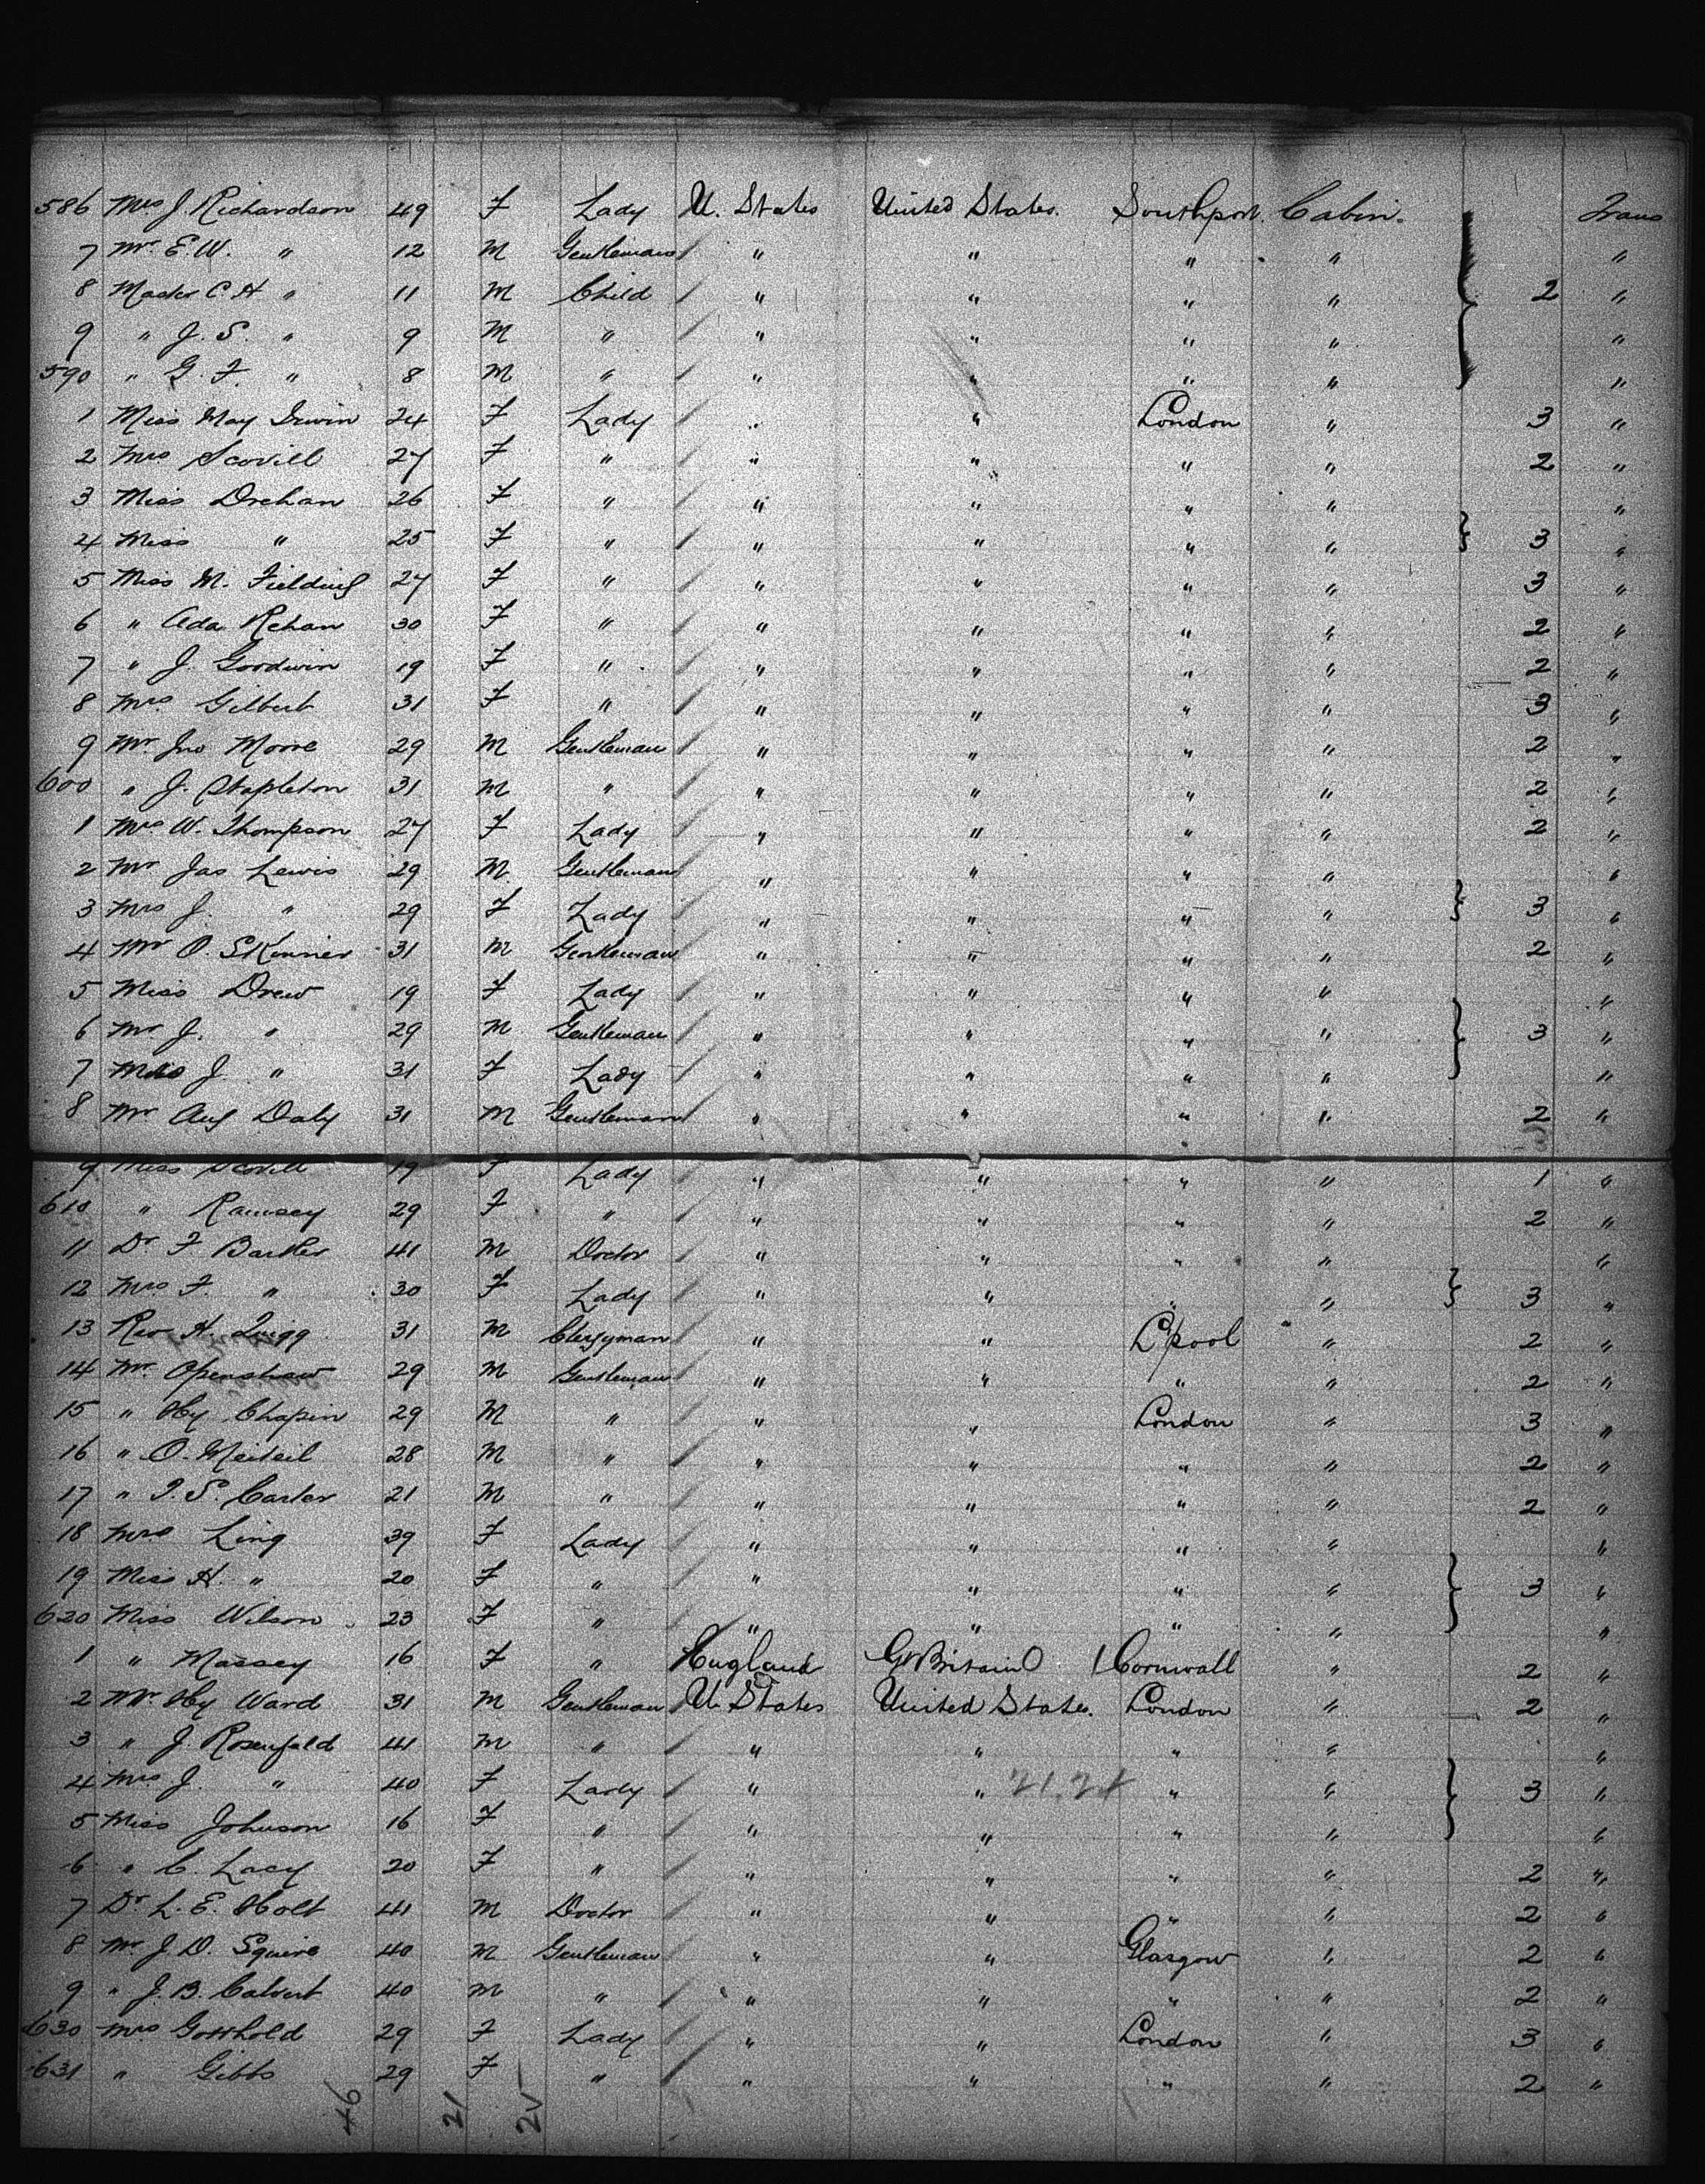 586 Mrs J. Richardson 49 F Lady U. States United States. Southport. Cabin. Trans
7 Mr. E.W. " 12 M Gentleman " " " " "
8 Master C. H " 11 M Child " " " " 2 "
9 " J. S. " 9 M " " " " " "
590 " G. F. " 8 M " " " " " "
1 Miss May Irwin 24 F Lady " " London " 3 "
2 Mrs Scovill 27 F " " " " " 2 "
3 Miss Drehan 26 F " " " " " "
4 Miss " 25 F " " " " " 3 "
5 Miss M. Fielding 27 F " " " " " 3 "
6 " Ada Rehan 30 F " " " " " 2 "
7 " J. Goodwin 19 F " " " " " 2 "
8 Mrs. Gilbert 31 F " " " " " 3 "
9 Mr. Jno Moore 29 M Gentleman " " " " 2 "
600 " J. Stapleton 31 M " " " " " 2 "
1 Mrs W. Thompson 27 F Lady " " " " 2 "
2 Mr Jas Lewis 29 M. Gentleman " " " " "
3 Mrs J. " 29 F Lady " " " " 3 "
4 Mr O. Skinner 31 M Gentleman " " " " 2 "
5 Miss Drew 19 F Lady " " " " "
6 Mr. J. " 29 M Gentleman " " " " 3 "
7 J. " 31 F Lady " " " " "
8 Mr Aug Daly 31 M Gentleman " " " " 2 "
9 Miss Scovill 19 F Lady " " " " 1 "
610 " Ramsey 29 F " " " " " 2 "
11 Dr F 41 M Doctor " " " " "
12 Mrs F. " 30 F Lady " " " " 3 "
13 Rev H. Quigg 31 M Clergyman " " L'pool " 2 "
14 Mr. Openshaw 29 M Gentleman " " " " 2 "
15 " Hy Chapin 29 M " " " London " 3 "
16 " O. 28 M " " " " " 2 "
17 " J. S. Carter 21 M " " " " " 2 "
18 Mrs Ling 39 F Lady " " " " "
19 Miss H. " 20 F " " " " " 3 "
620 Miss Wilson 23 F " " " " " "
1 " Massey 16 F " England Gt Britain Cornwall " 2 "
2 Mr Hy Ward 31 M Gentleman U. States United States. London " 2 "
3 " J. Rosenfeld 41 M " " " " " "
4 Mrs J. " 40 F Lady " " " " 3 "
5 Miss Johnson 16 F " " " " " "
6 " C. Lacy 20 F " " " " " 2 "
7 Dr L. E. Holt 41 M Doctor " " " " 2 "
8 Mr J. D. Squire 40 M Gentleman " " Glasgow " 2 "
9 " J. B. Calvert 40 M " " " " " 2 "
630 Mrs Gotthold 29 F Lady " " London " 3 "
631 " Gibbs 29 F " " " " " 2 "
46 21 25